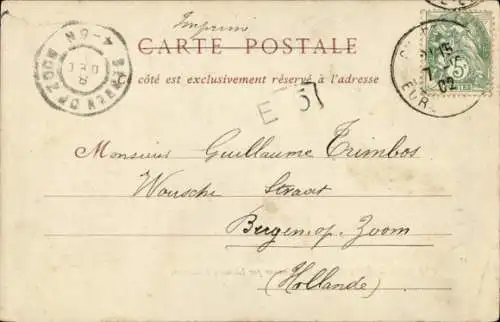 Imprimé
CARTE POSTALE
Ce côté est exclusivement réservé à l'adresse
BERGEN OP ZOOM
8 DEC
4-8N
5
15
7
02
EUR
E 57
Monsieur Guillaume Trimbos
Wouwsche Straat
Bergen op Zoom
(Hollande)